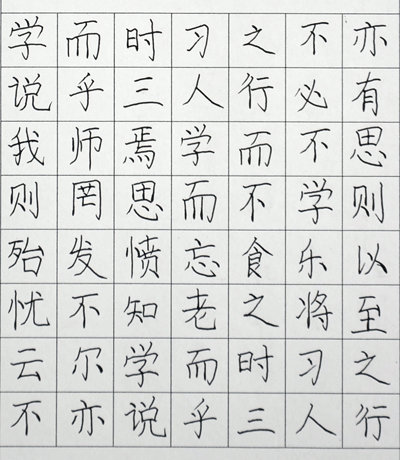 学而时习之不亦
说乎三人行必有
我师焉学而不思
则罔思而不学则
殆发愤忘食乐以
忧不知老之将至
云尔学而时习之
不亦说乎三人行